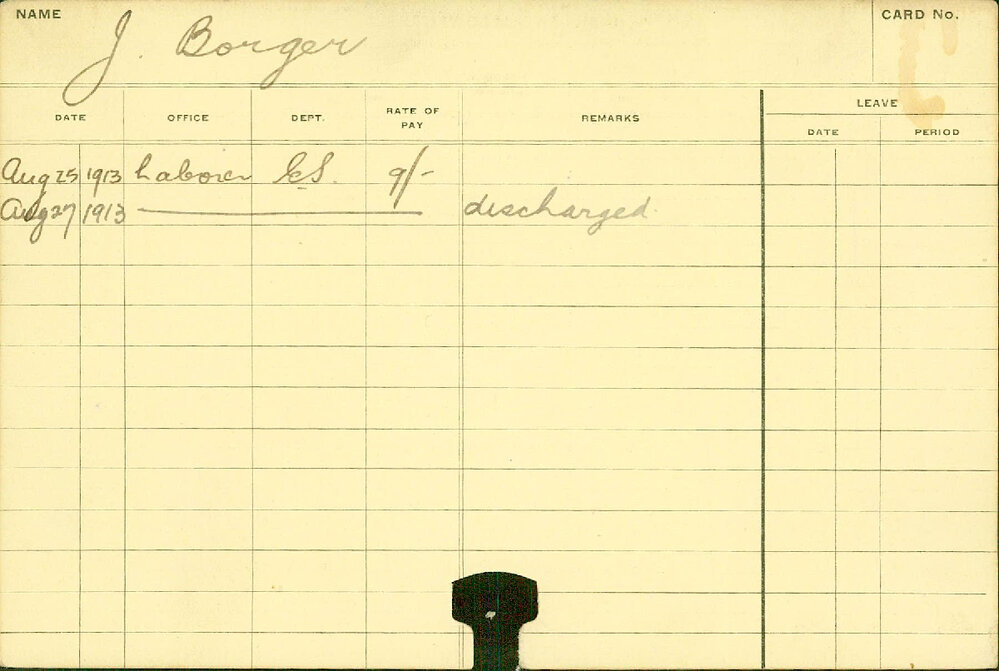 NAME
CARD No.
J. Borger
DATE OFFICE DEPT. RATE OF PAY REMARKS LEAVE
DATE PERIOD
Aug 25 1913 Laborer 9/-
Aug 27 1913 discharged.